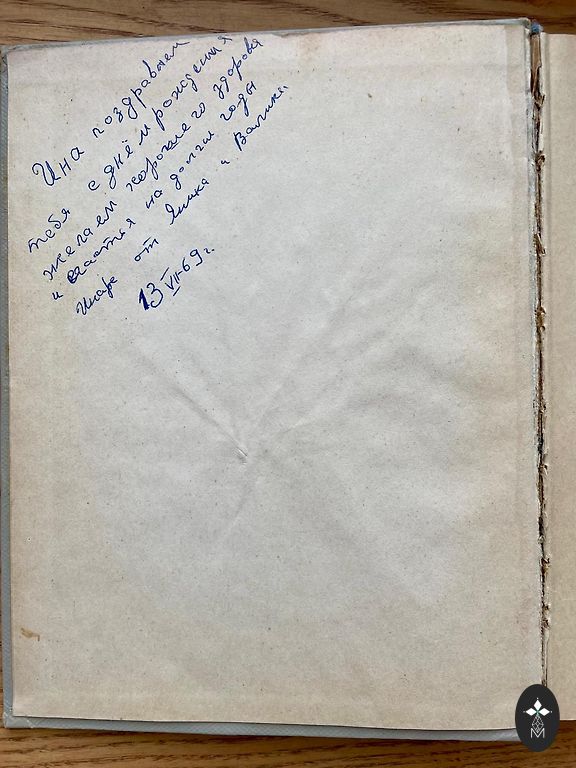 Ина поздравляем
тебя с днём рождения
желаем хорошего здоровя
и счастья на долгие годы
от и Валика.
13 VII-69 г.
M